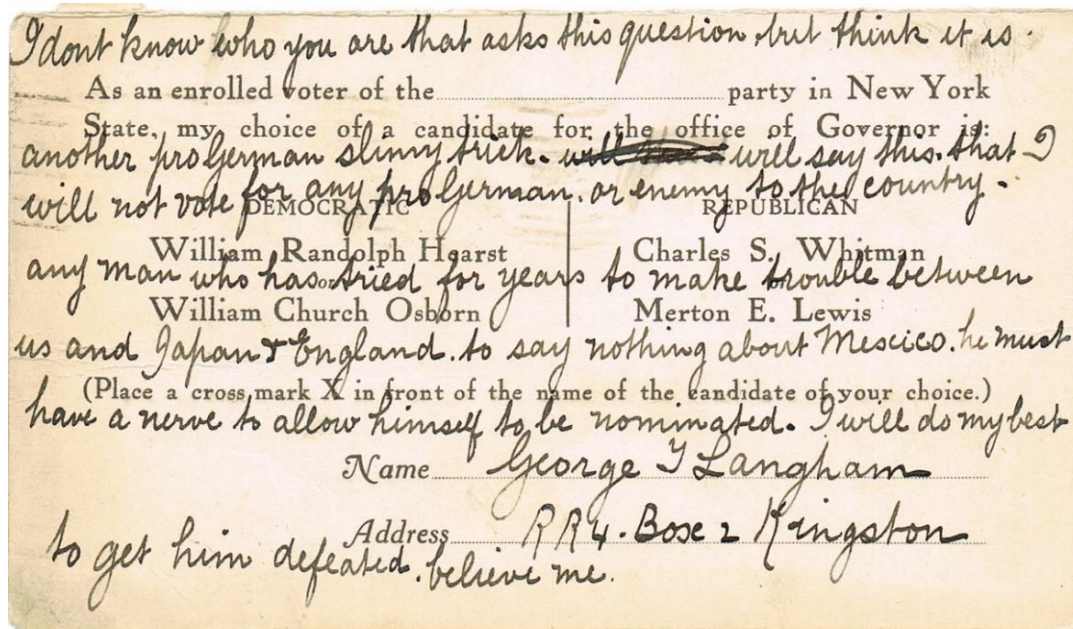 I dont know who you are that asks this question. but think it is.
As an enrolled voter of the party in New York
State, my choice of a candidate for the office of Governor is:
another proGerman slimy trick. will say this. that I
will not vote for any proGerman. or enemy to the country.
DEMOCRATIC REPUBLICAN
William Randolph Hearst Charles S. Whitman
any man who has tried for years to make trouble between
or or
William Church Osborn Merton E. Lewis
us and Japan & England. to say nothing about Mexico. he must
(Place a cross mark X in front of the name of the candidate of your choice.)
have a nerve to allow himself to be nominated. I will do my best
Name George T Langham
Address RR4. Box 2 Kingston
to get him defeated. believe me.